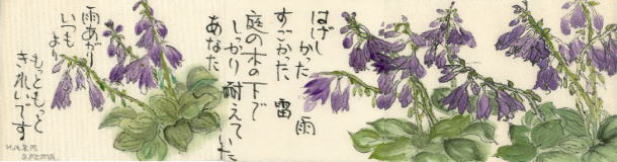 はげしかった 雨
すごかった 雷
庭の木の下で
しっかり耐えていた
あなた
雨あがり
いつもより
もっともっと
きれいです